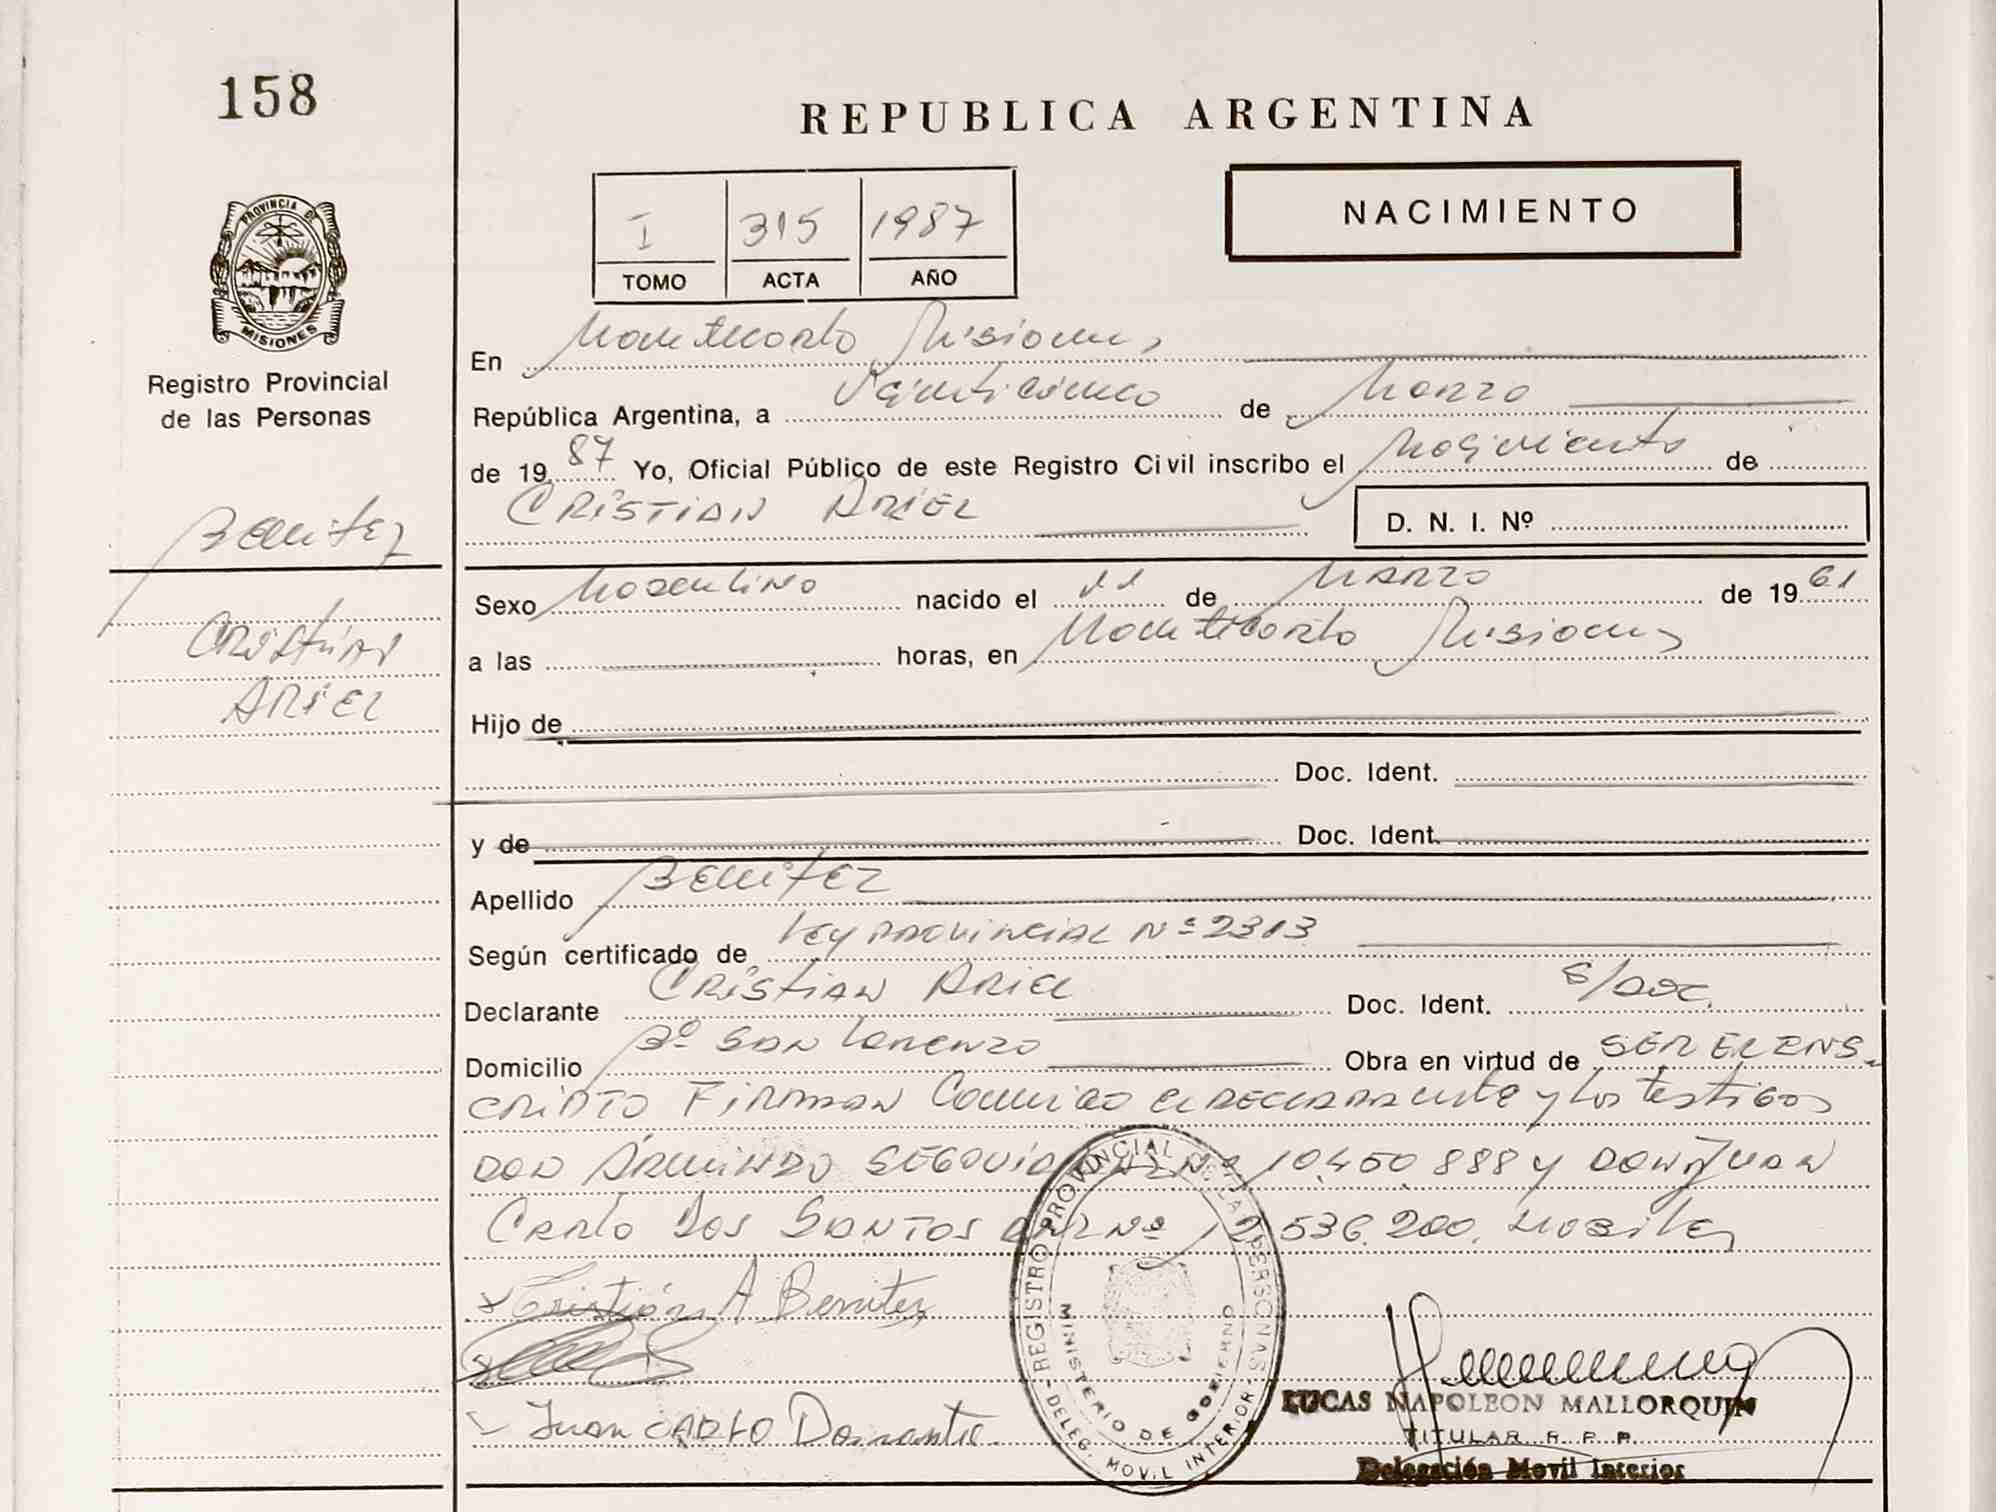 158
REPUBLICA ARGENTINA
NACIMIENTO
I 315 1987
TOMO ACTA AÑO
PROVINCIA DE
MISIONES
Registro Provincial
de las Personas
En Montecarlo Misiones,
República Argentina, a Veinticinco de Marzo
de 1987 Yo, Oficial Público de este Registro Civil inscribo el Nacimiento de
CRISTIAN ARIEL D. N. I. Nº
Benitez
Cristian
ARIEL
Sexo Masculino nacido el 11 de MARZO de 1961
a las horas, en Montecarlo Misiones
Hijo de
Doc. Ident.
y de Doc. Ident.
Apellido Benitez
Según certificado de Ley PROVINCIAL Nº 2313
Declarante CRISTIAN ARIEL Doc. Ident. S/DOC.
Domicilio Bº SAN Lorenzo Obra en virtud de SER EL INS
CRIPTO FIRMAN Conmigo el DECLARANTE y los testigos
DON ARMINDO SEGOVIA Nº 10.450.888 y DON JUAN
CARLO DOS SANTOS DNI Nº 12.536.200.
Cristián A Benitez
Juan CARLO
REGISTRO PROVINCIAL DE LAS PERSONAS
MINISTERIO DE GOBIERNO
- DELEG. MOVIL INTERIOR -
LUCAS NAPOLEON MALLORQUIN
TITULAR R. P. P.
Delegación Movil Interior